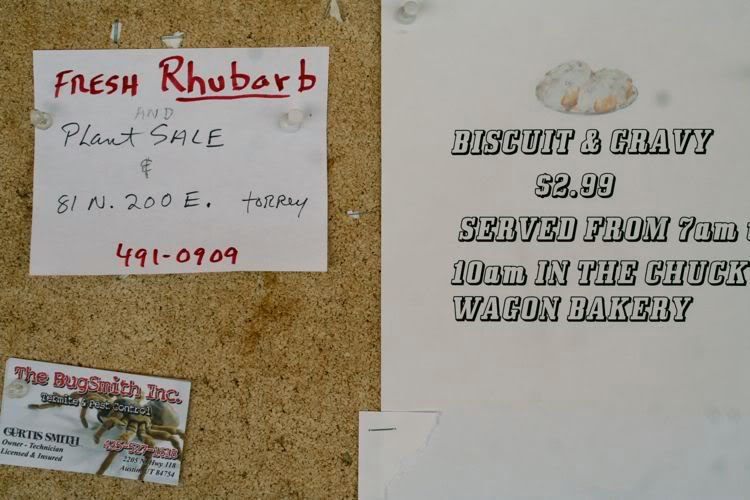 FRESH Rhubarb
AND
Plant SALE
¢
81 N. 200 E. torrey
491-0909
The BugSmith Inc.
Termite & Pest Control
CURTIS SMITH
Owner - Technician
Licensed & Insured
2205 N. Hwy 118
Austin, UT 84754
BISCUIT & GRAVY
$2.99
SERVED FROM 7am
10am IN THE CHUCK
WAGON BAKERY